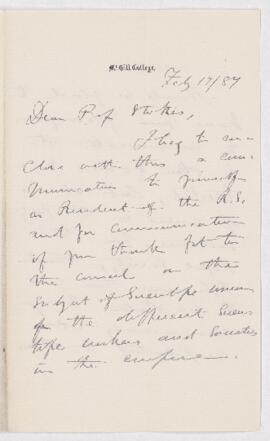 McGill College,
Feb 17/87
Dear Prof Stokes,
I beg to en-
close with this a com-
munication to yourself
as President of the R.S.
and for communication
if you think fit to
the council on the
subject of
the different Scien-
tific workers and Societies
in the empire.